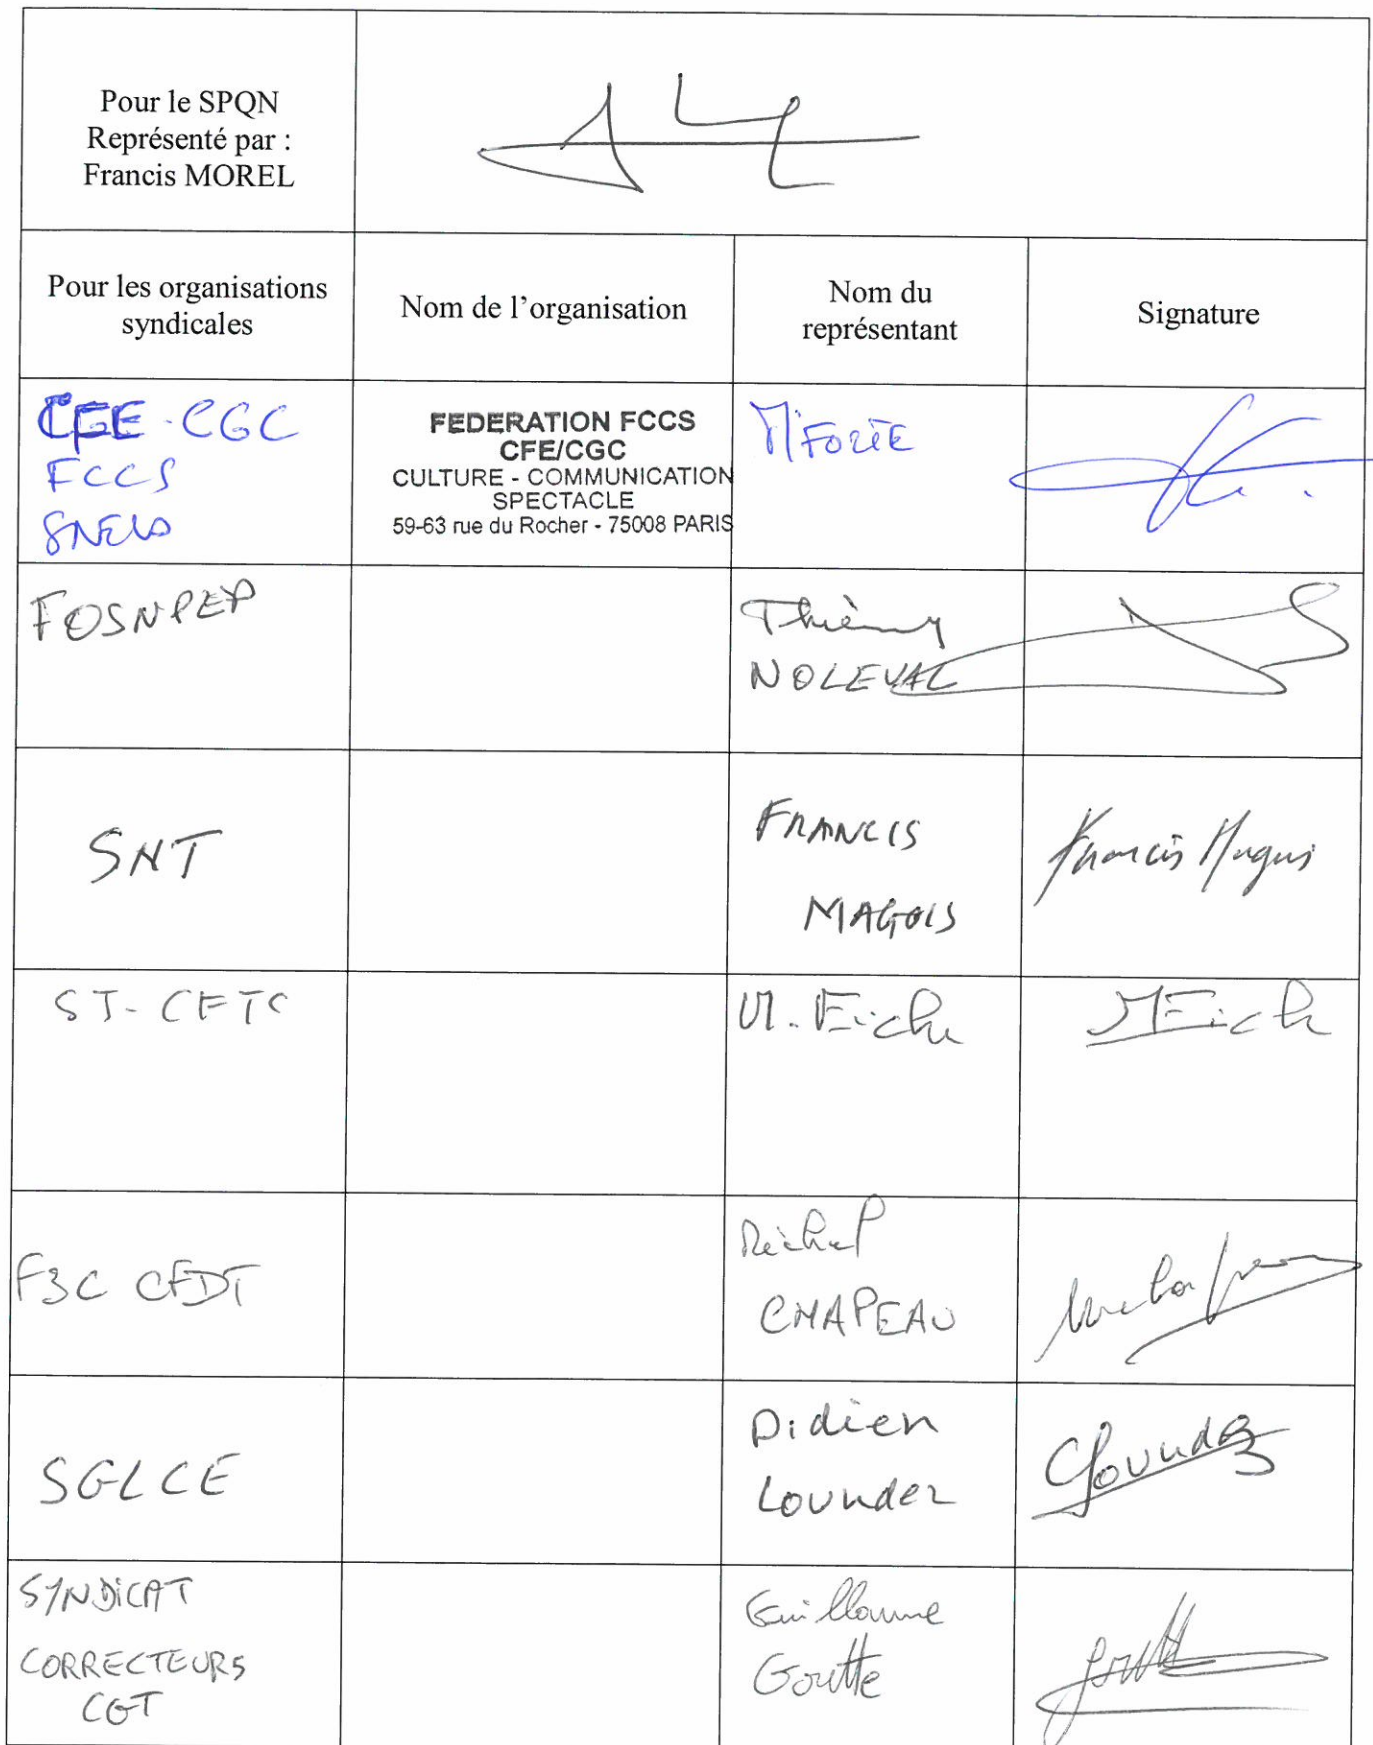 Pour le SPQN
Représenté par :
Francis MOREL
Pour les organisations
syndicales
Nom de l'organisation
Nom du
représentant
Signature
CFE-CGC
FCCS
FEDERATION FCCS
CFE/CGC
CULTURE - COMMUNICATION
SPECTACLE
59-63 rue du Rocher - 75008 PARIS
FOSNPEP
Thierry
NOLEVAL
SNT
FRANCIS
MAGOIS
Francis Magois
SJ-CFTC
M.
F3C CFDT
Michel
CHAPEAU
SGLCE
Didier
Lourdez
Lourdez
SYNDICAT
CORRECTEURS
CGT
Guillaume
Goutte
Goutte